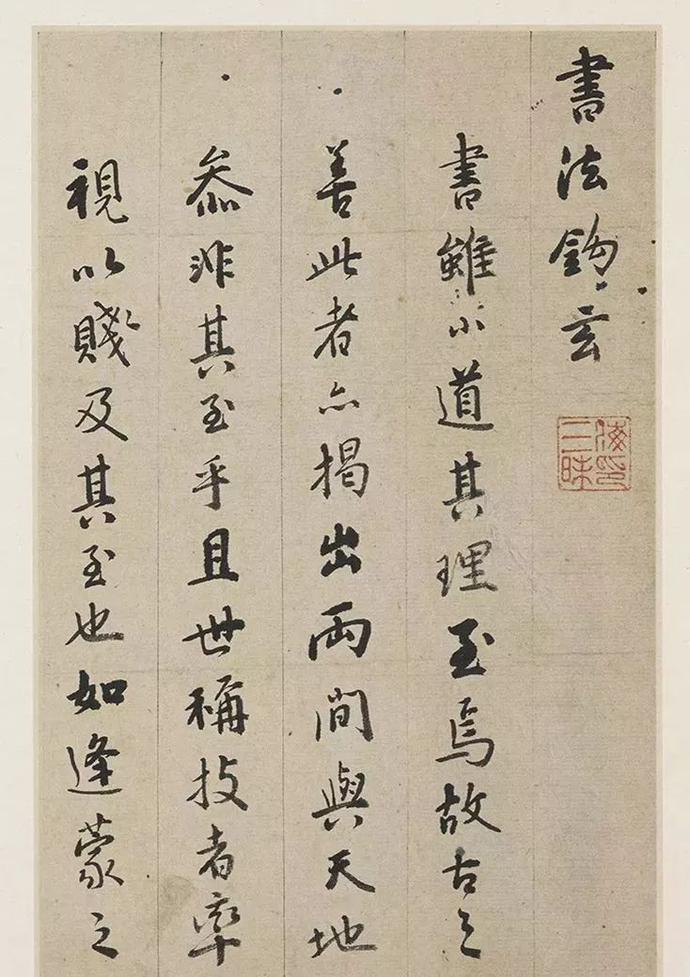 書法鈎玄
書雖小道其理至焉故古之
善此者亦揭出兩間與天地
叅非其至乎且世稱技者率
視以賤及其至也如逢蒙之
三昧